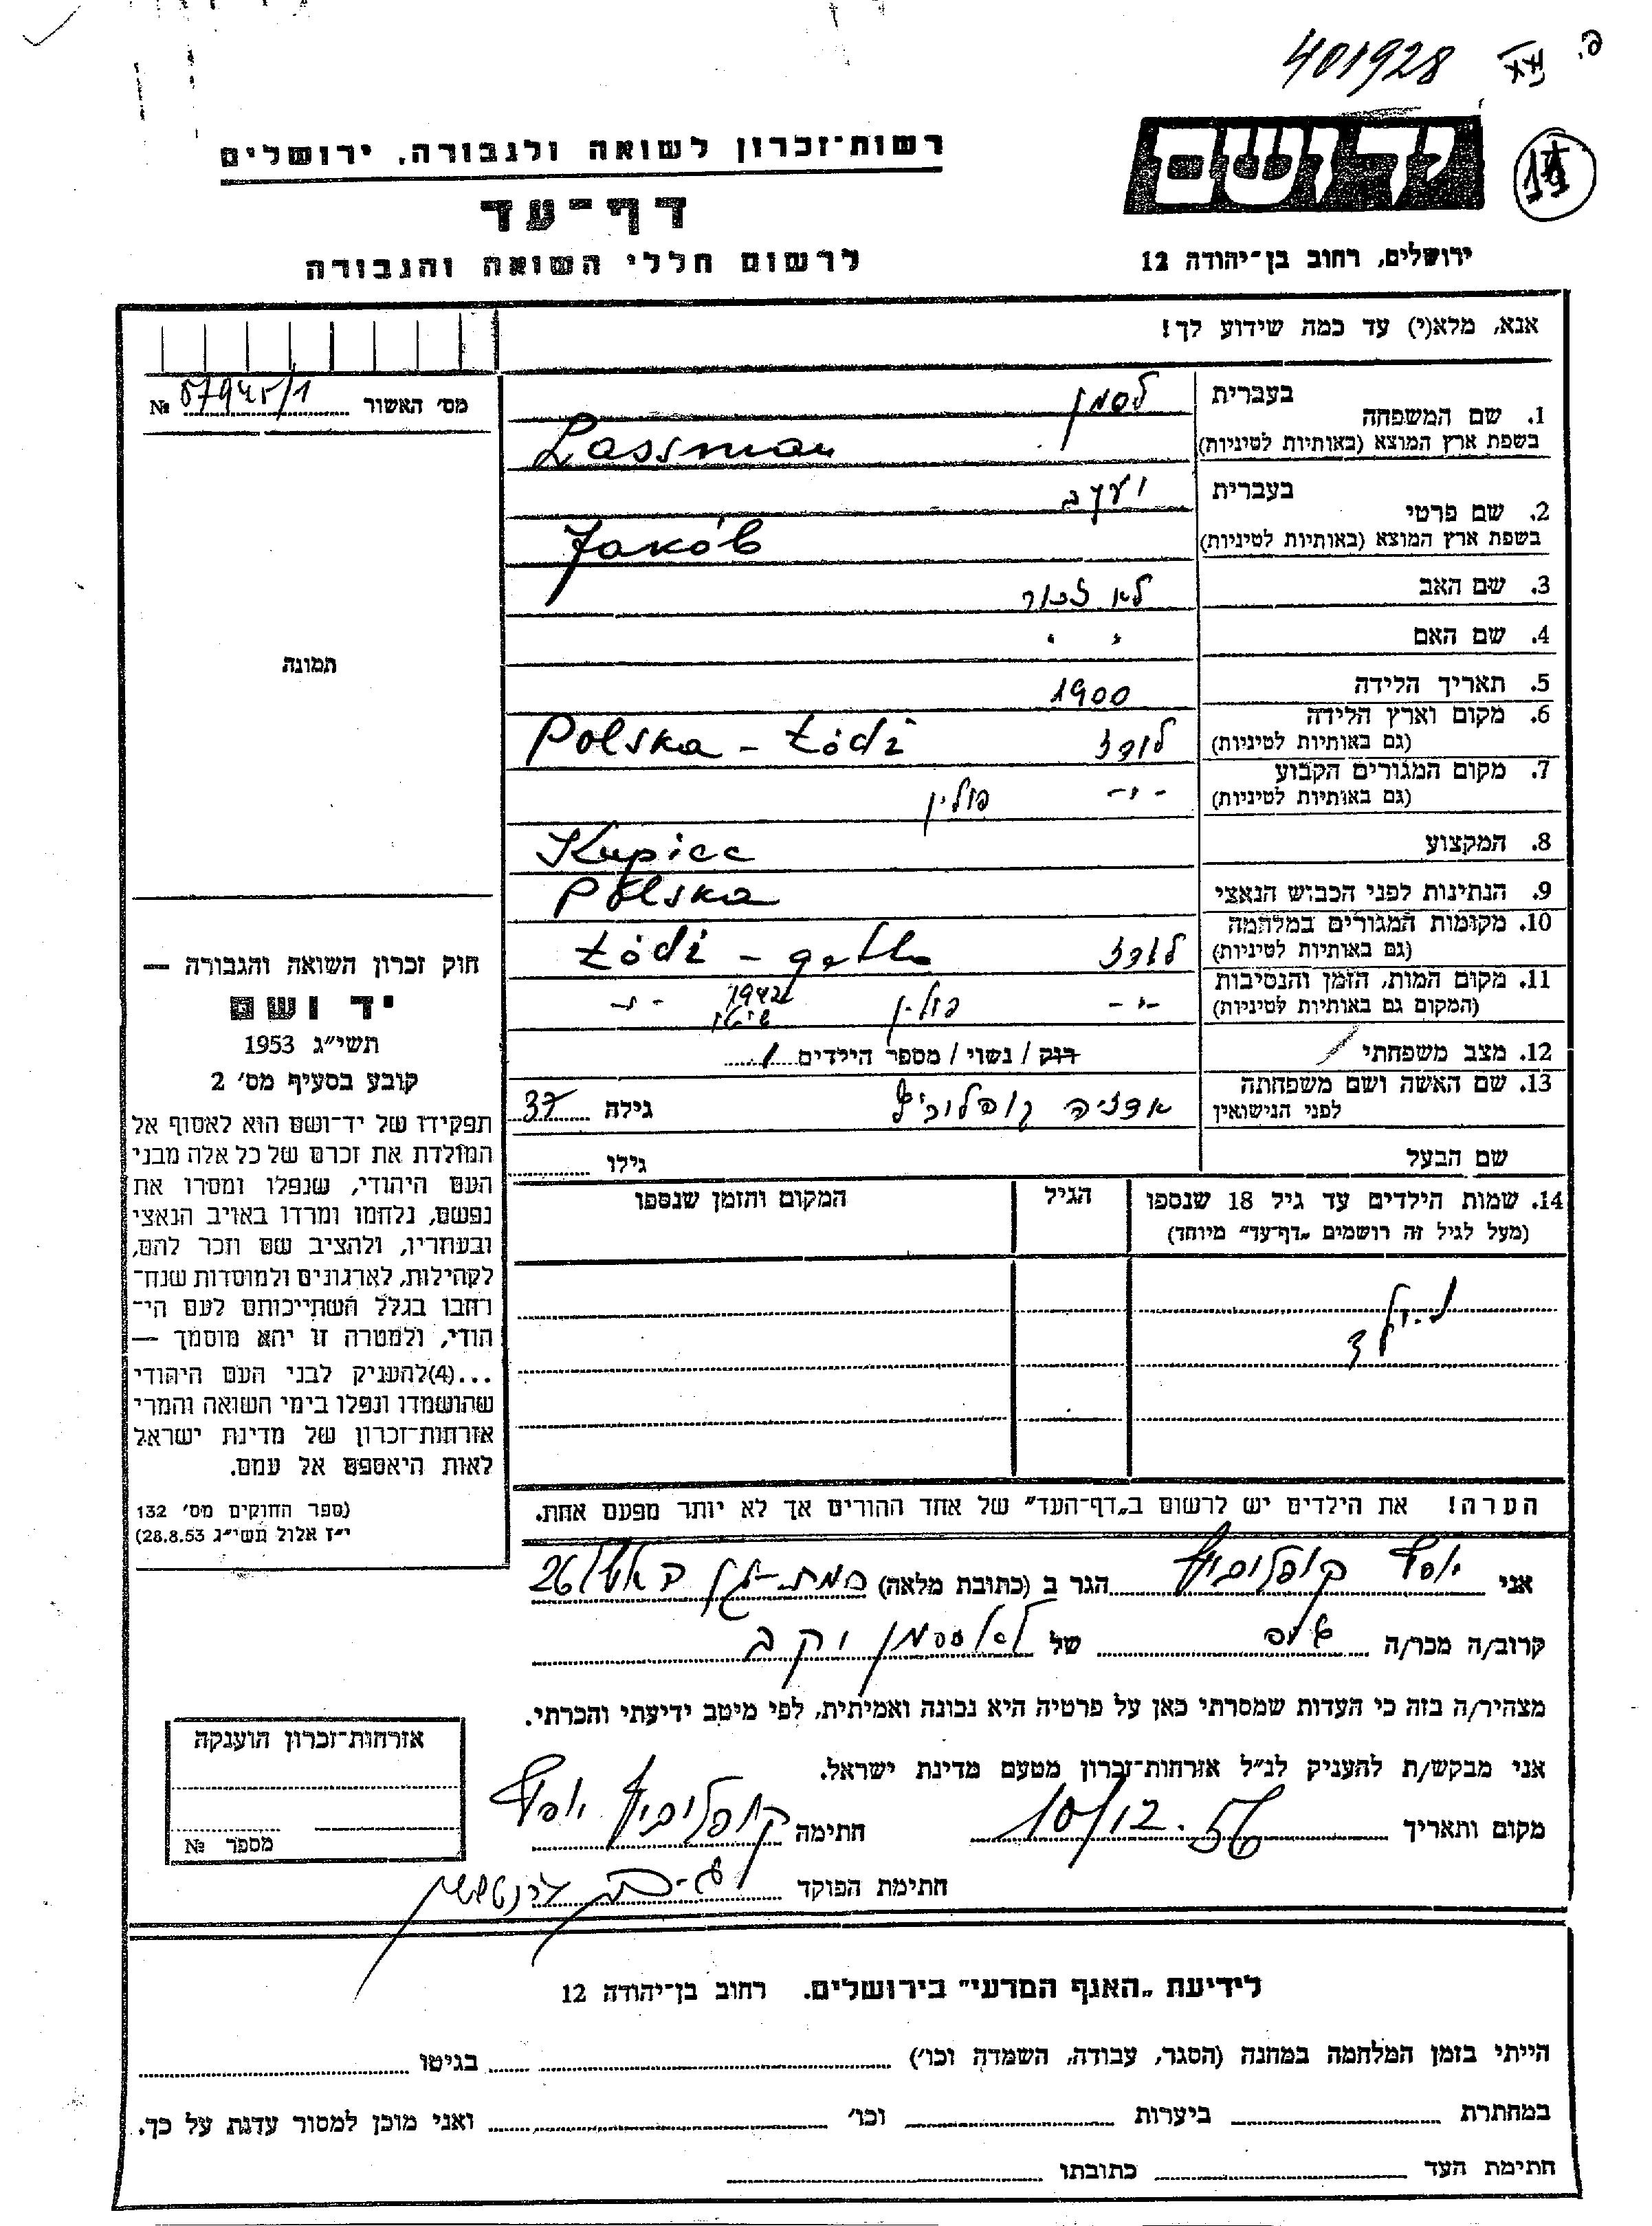 401928
רשות־זכרון לשואה ולגבורה, ירושלים
יד ושם
דף־עד
לרשום חללי השואה והגבורה
ירושלים, רחוב בן־יהודה 12
אנא, מלא(י) עד כמה שידוע לך!
מס' האשור № 57945/1
1. שם המשפחה בעברית לסמן
בשפת ארץ המוצא (באותיות לטיניות) Lassman
2. שם פרטי בעברית יעקב
בשפת ארץ המוצא (באותיות לטיניות) Jakób
3. שם האב לא זכור
4. שם האם " "
תמונה
5. תאריך הלידה 1900
6. מקום וארץ הלידה (גם באותיות לטיניות) לודז Polska - Łódź
7. מקום המגורים הקבוע (גם באותיות לטיניות) -"- פולין
8. המקצוע Kupiec
9. הנתינות לפני הכבוש הנאצי Polska
10. מקומות המגורים במלחמה (גם באותיות לטיניות) לודז Łódź - getto
11. מקום המות, הזמן והנסיבות (המקום גם באותיות לטיניות) -"- פולין 1942 -"-
12. מצב משפחתי רוק / נשוי / מספר הילדים 1
13. שם האשה ושם משפחתה לפני הנישואין גילה 37
שם הבעל גילו
14. שמות הילדים עד גיל 18 שנספו הגיל המקום והזמן שנספו
(מעל לגיל זה רושמים „דף־עד" מיוחד)
חוק זכרון השואה והגבורה —
יד ושם
תשי״ג 1953
קובע בסעיף מס' 2
תפקידו של יד־ושם הוא לאסוף אל
המולדת את זכרם של כל אלה מבני
העם היהודי, שנפלו ומסרו את
נפשם, נלחמו ומרדו באויב הנאצי
ובעוזריו, ולהציב שם וזכר להם,
לקהילות, לארגונים ולמוסדות שנח־
רחבו בגלל השתייכותם לעם הי־
הודי, ולמטרה זו יהא מוסמך —
...(4)להעניק לבני העם היהודי
שהושמדו ונפלו בימי השואה והמרי
אזרחות־זכרון של מדינת ישראל
לאות היאספם אל עמם.
(ספר החוקים מס' 132
י״ז אלול תשי״ג 28.8.53)
הערה! את הילדים יש לרשום ב„דף־העד" של אחד ההורים אך לא יותר מפעם אחת.
אני יוסף קופלוביץ הגר ב (כתובת מלאה) רמת-גן 26
קרוב/ה מכר/ה גיס של לאסמן יקב
מצהיר/ה בזה כי העדות שמסרתי כאן על פרטיה היא נכונה ואמיתית, לפי מיטב ידיעתי והכרתי.
אני מבקש/ת להעניק לנ״ל אזרחות־זכרון מטעם מדינת ישראל.
מקום ותאריך 10/12.56 חתימה קופלוביץ יוסף
חתימת הפוקד
אזרחות־זכרון הוענקה
מספר №
לידיעת „האגף המדעי" בירושלים. רחוב בן־יהודה 12
הייתי בזמן המלחמה במחנה (הסגר, עבודה, השמדה וכו') בגיטו
במחתרת ביערות וכו' ואני מוכן למסור עדות על כך.
חתימת העד כתובתו